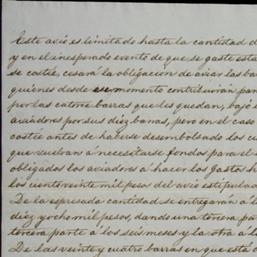 Este avio es limitado hasta la cantidad d
y en el inesperado evento de que se gaste esta
se costée, cesará la obligacion de aviar las bar
quienes desde ese momento contribuirán par
por las catorce barras que les quedan, bajo
aviadores por sus diez barras, pero en el caso
costée antes de hacerse desembolsado los cu
que vuelvan á necesitarse fondos para el
obligados los aviadores á hacer los gastos h
los ciento veinte mil pesos del avio estipulad
De la espresada cantidad se entregarán á l
diez y ocho mil pesos, dando una tercera par
tercera parte á los seis meses y la otra á l
De las veinte y cuatro barras en que está d